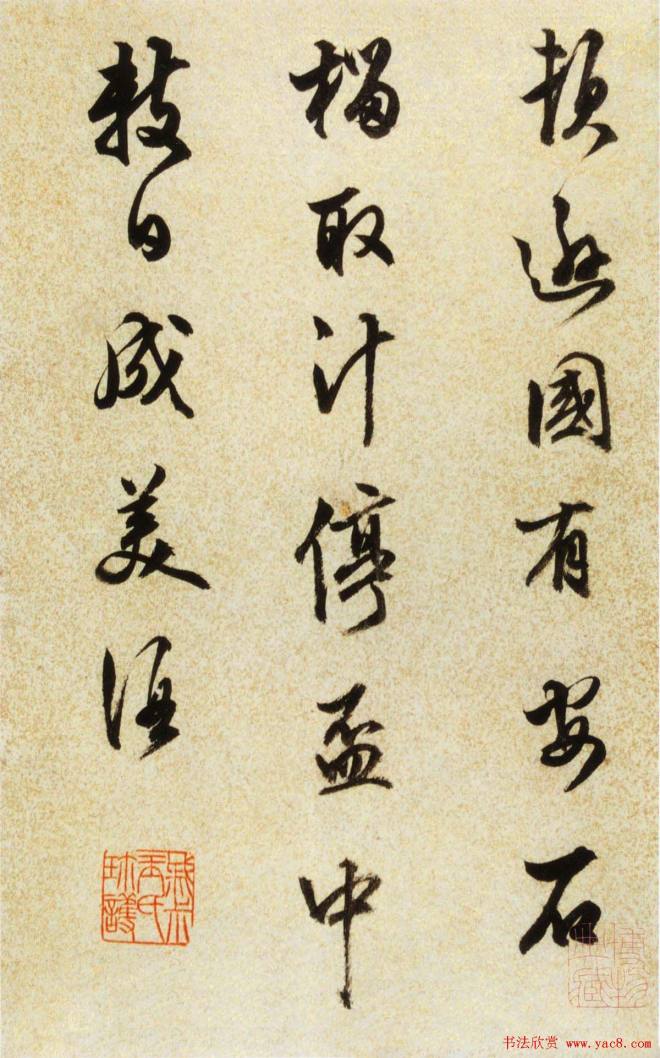 頓遜國有安石
榴取汁停盃中
數日成美酒
書法欣赏 www.yac8.com